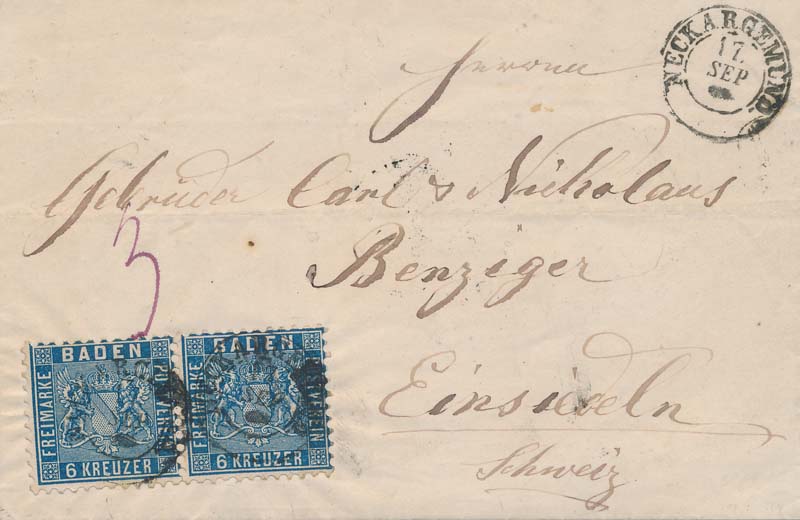 Herrn
NECKARGEMÜND
17.
SEP
Gebrüder Carl & Nicholaus
3
Benziger
Einsiedeln
Schweiz
BADEN
FREIMARKE
POSTVEREIN
6 KREUZER
BADEN
FREIMARKE
POSTVEREIN
6 KREUZER